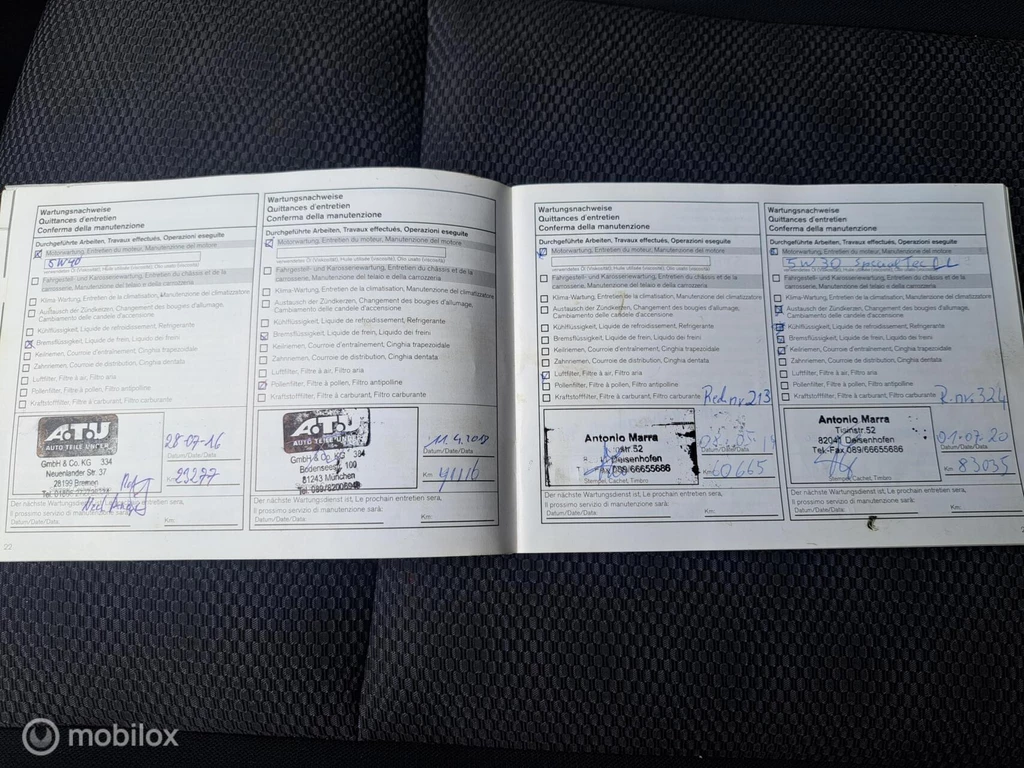 Wartungsnachweise
Quittances d'entretien
Conferma della manutenzione
Durchgeführte Arbeiten, Travaux effectués, Operazioni eseguite
Motorwartung, Entretien du moteur, Manutenzione del motore
5W40
verwendetes Öl (Viskosität), Huile utilisée (viscosité), Olio usato (viscosità)
Fahrgestell- und Karosseriewartung, Entretien du châssis et de la
carrosserie, Manutenzione del telaio e della carrozzeria
Klima-Wartung, Entretien de la climatisation, Manutenzione del climatizzatore
Austausch der Zündkerzen, Changement des bougies d'allumage,
Cambiamento delle candele d'accensione
Kühlflüssigkeit, Liquide de refroidissement, Refrigerante
Bremsflüssigkeit, Liquide de frein, Liquido dei freini
Keilriemen, Courroie d'entraînement, Cinghia trapezoidale
Zahnriemen, Courroie de distribution, Cinghia dentata
Luftfilter, Filtre à air, Filtro aria
Pollenfilter, Filtre à pollen, Filtro antipolline
Kraftstofffilter, Filtre à carburant, Filtro carburante
A.T.U
AUTO TEILE UNGER
GmbH & Co. KG 334
Neuenlander Str. 37
28199 Bremen
28-09-16
Datum/Date/Data:
Km:
Der nächste Wartungsdienst ist, Le prochain entretien sera,
Il prossimo servizio di manutenzione sarà:
Datum/Date/Data:
Km:
22
Wartungsnachweise
Quittances d'entretien
Conferma della manutenzione
Durchgeführte Arbeiten, Travaux effectués, Operazioni eseguite
Motorwartung, Entretien du moteur, Manutenzione del motore
verwendetes Öl (Viskosität), Huile utilisée (viscosité), Olio usato (viscosità)
Fahrgestell- und Karosseriewartung, Entretien du châssis et de la
carrosserie, Manutenzione del telaio e della carrozzeria
Klima-Wartung, Entretien de la climatisation, Manutenzione del climatizzatore
Austausch der Zündkerzen, Changement des bougies d'allumage,
Cambiamento delle candele d'accensione
Kühlflüssigkeit, Liquide de refroidissement, Refrigerante
Bremsflüssigkeit, Liquide de frein, Liquido dei freini
Keilriemen, Courroie d'entraînement, Cinghia trapezoidale
Zahnriemen, Courroie de distribution, Cinghia dentata
Luftfilter, Filtre à air, Filtro aria
Pollenfilter, Filtre à pollen, Filtro antipolline
Kraftstofffilter, Filtre à carburant, Filtro carburante
A.T.U
AUTO TEILE UNGER
GmbH & Co. KG 384
100
81243 München
Tel. 089/82006940
11.4.2018
Datum/Date/Data:
Km: 41116
Der nächste Wartungsdienst ist, Le prochain entretien sera,
Il prossimo servizio di manutenzione sarà:
Datum/Date/Data:
Km:
Wartungsnachweise
Quittances d'entretien
Conferma della manutenzione
Durchgeführte Arbeiten, Travaux effectués, Operazioni eseguite
Motorwartung, Entretien du moteur, Manutenzione del motore
verwendetes Öl (Viskosität), Huile utilisée (viscosité), Olio usato (viscosità)
Fahrgestell- und Karosseriewartung, Entretien du châssis et de la
carrosserie, Manutenzione del telaio e della carrozzeria
Klima-Wartung, Entretien de la climatisation, Manutenzione del climatizzatore
Austausch der Zündkerzen, Changement des bougies d'allumage,
Cambiamento delle candele d'accensione
Kühlflüssigkeit, Liquide de refroidissement, Refrigerante
Bremsflüssigkeit, Liquide de frein, Liquido dei freini
Keilriemen, Courroie d'entraînement, Cinghia trapezoidale
Zahnriemen, Courroie de distribution, Cinghia dentata
Luftfilter, Filtre à air, Filtro aria
Pollenfilter, Filtre à pollen, Filtro antipolline
Kraftstofffilter, Filtre à carburant, Filtro carburante
Rech.nr 213
Antonio Marra
str.52
Deisenhofen
089/66655686
Stempel, Cachet, Timbro
Datum/Date/Data:
Km: 60665
Der nächste Wartungsdienst ist, Le prochain entretien sera,
Il prossimo servizio di manutenzione sarà:
Datum/Date/Data:
Km:
Wartungsnachweise
Quittances d'entretien
Conferma della manutenzione
Durchgeführte Arbeiten, Travaux effectués, Operazioni eseguite
Motorwartung, Entretien du moteur, Manutenzione del motore
5W30 Special Tec
verwendetes Öl (Viskosität), Huile utilisée (viscosité), Olio usato (viscosità)
Fahrgestell- und Karosseriewartung, Entretien du châssis et de la
carrosserie, Manutenzione del telaio e della carrozzeria
Klima-Wartung, Entretien de la climatisation, Manutenzione del climatizzatore
Austausch der Zündkerzen, Changement des bougies d'allumage,
Cambiamento delle candele d'accensione
Kühlflüssigkeit, Liquide de refroidissement, Refrigerante
Bremsflüssigkeit, Liquide de frein, Liquido dei freini
Keilriemen, Courroie d'entraînement, Cinghia trapezoidale
Zahnriemen, Courroie de distribution, Cinghia dentata
Luftfilter, Filtre à air, Filtro aria
Pollenfilter, Filtre à pollen, Filtro antipolline
Kraftstofffilter, Filtre à carburant, Filtro carburante
R.nr. 324
Antonio Marra
Tisinstr.52
82041 Deisenhofen
Tel.-Fax 089/66655686
Stempel, Cachet, Timbro
01.07.20
Datum/Date/Data:
Km: 83035
Der nächste Wartungsdienst ist, Le prochain entretien sera,
Il prossimo servizio di manutenzione sarà:
Datum/Date/Data:
Km:
mobilox